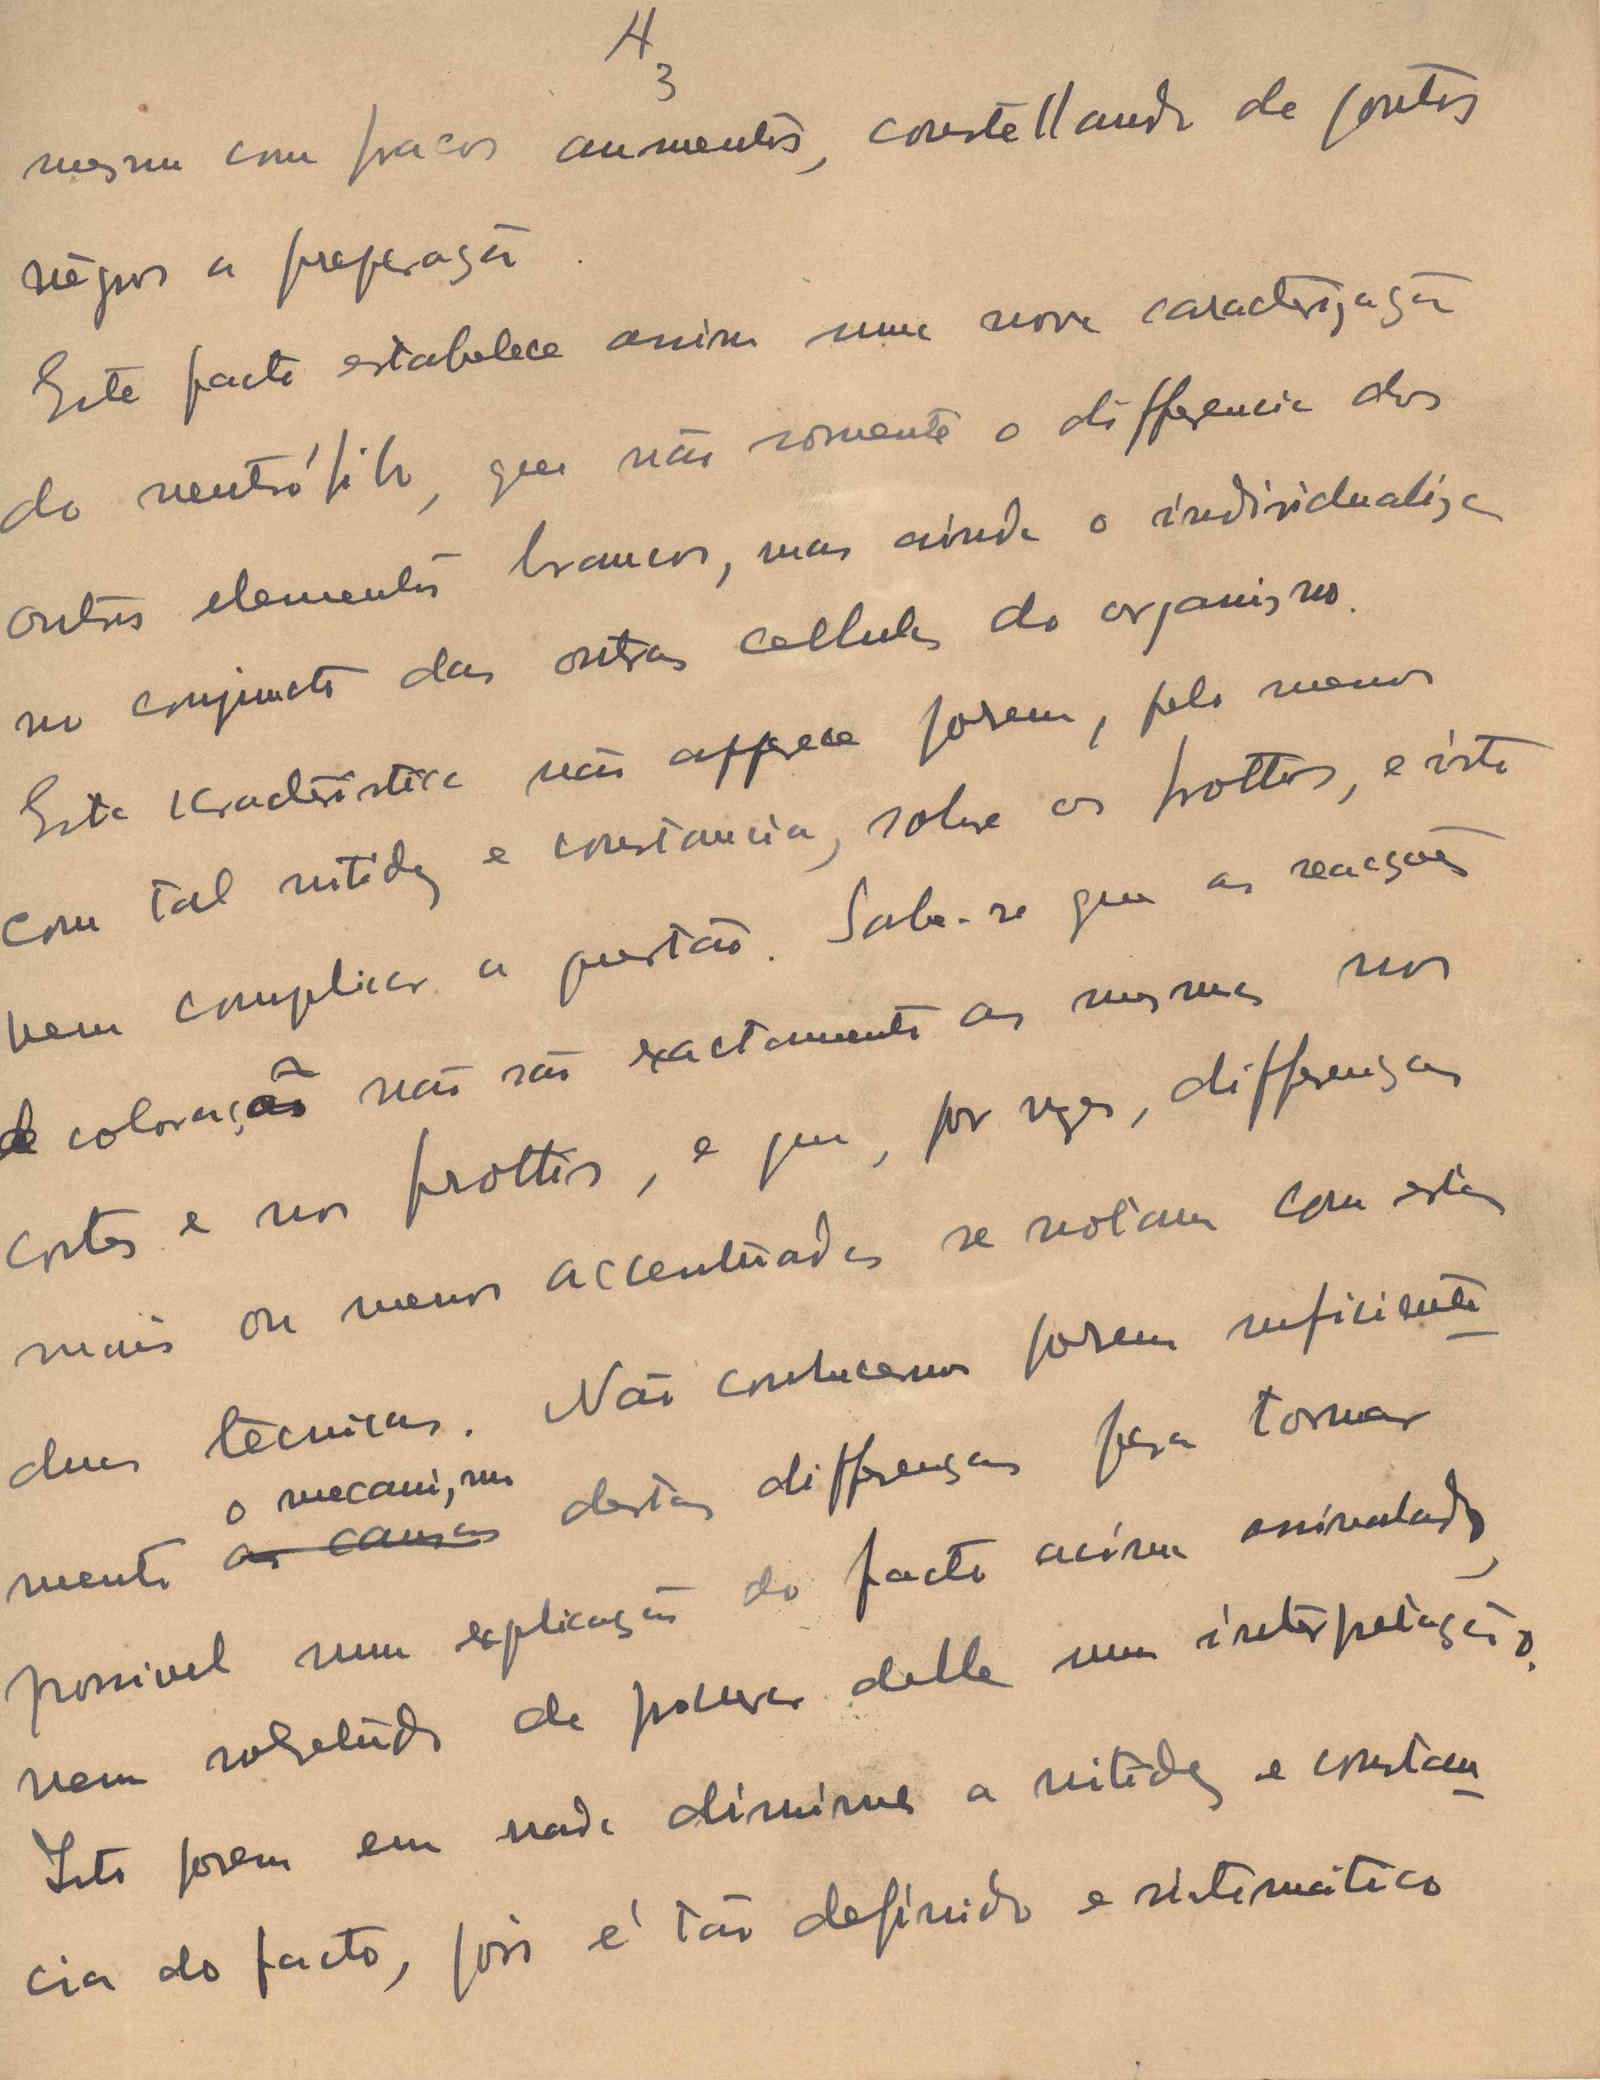 H
3
mesmo com fracos aumentos, constellando de pontos
negros a preparação.
Este facto estabelece assim uma nova caracterização
do neutrófilo, que não somente o differencia dos
outros elementos brancos, mas ainda o individualiza
no conjuncto das outras cellulas do organismo.
Esta característica não apparece porem, pelo menos
com tal nitidez e constancia, sobre os frottis, e isto
vem complicar a questão. Sabe-se que as reacções
de coloração não são exactamente as mesmas nos
cortes e nos frottis, e que, por vezes, differenças
mais ou menos accentuadas se notam com estas
duas técnicas. Não conhecemos porem suficiente
o mecanismo
mente as causas destas differenças para tornar
possivel uma explicação do facto acima assinalado,
nem sobretudo de procurar delle uma interpretação.
Isto porem em nada diminue a nitidez e constan
cia do facto, pois é tão definido e sistemático